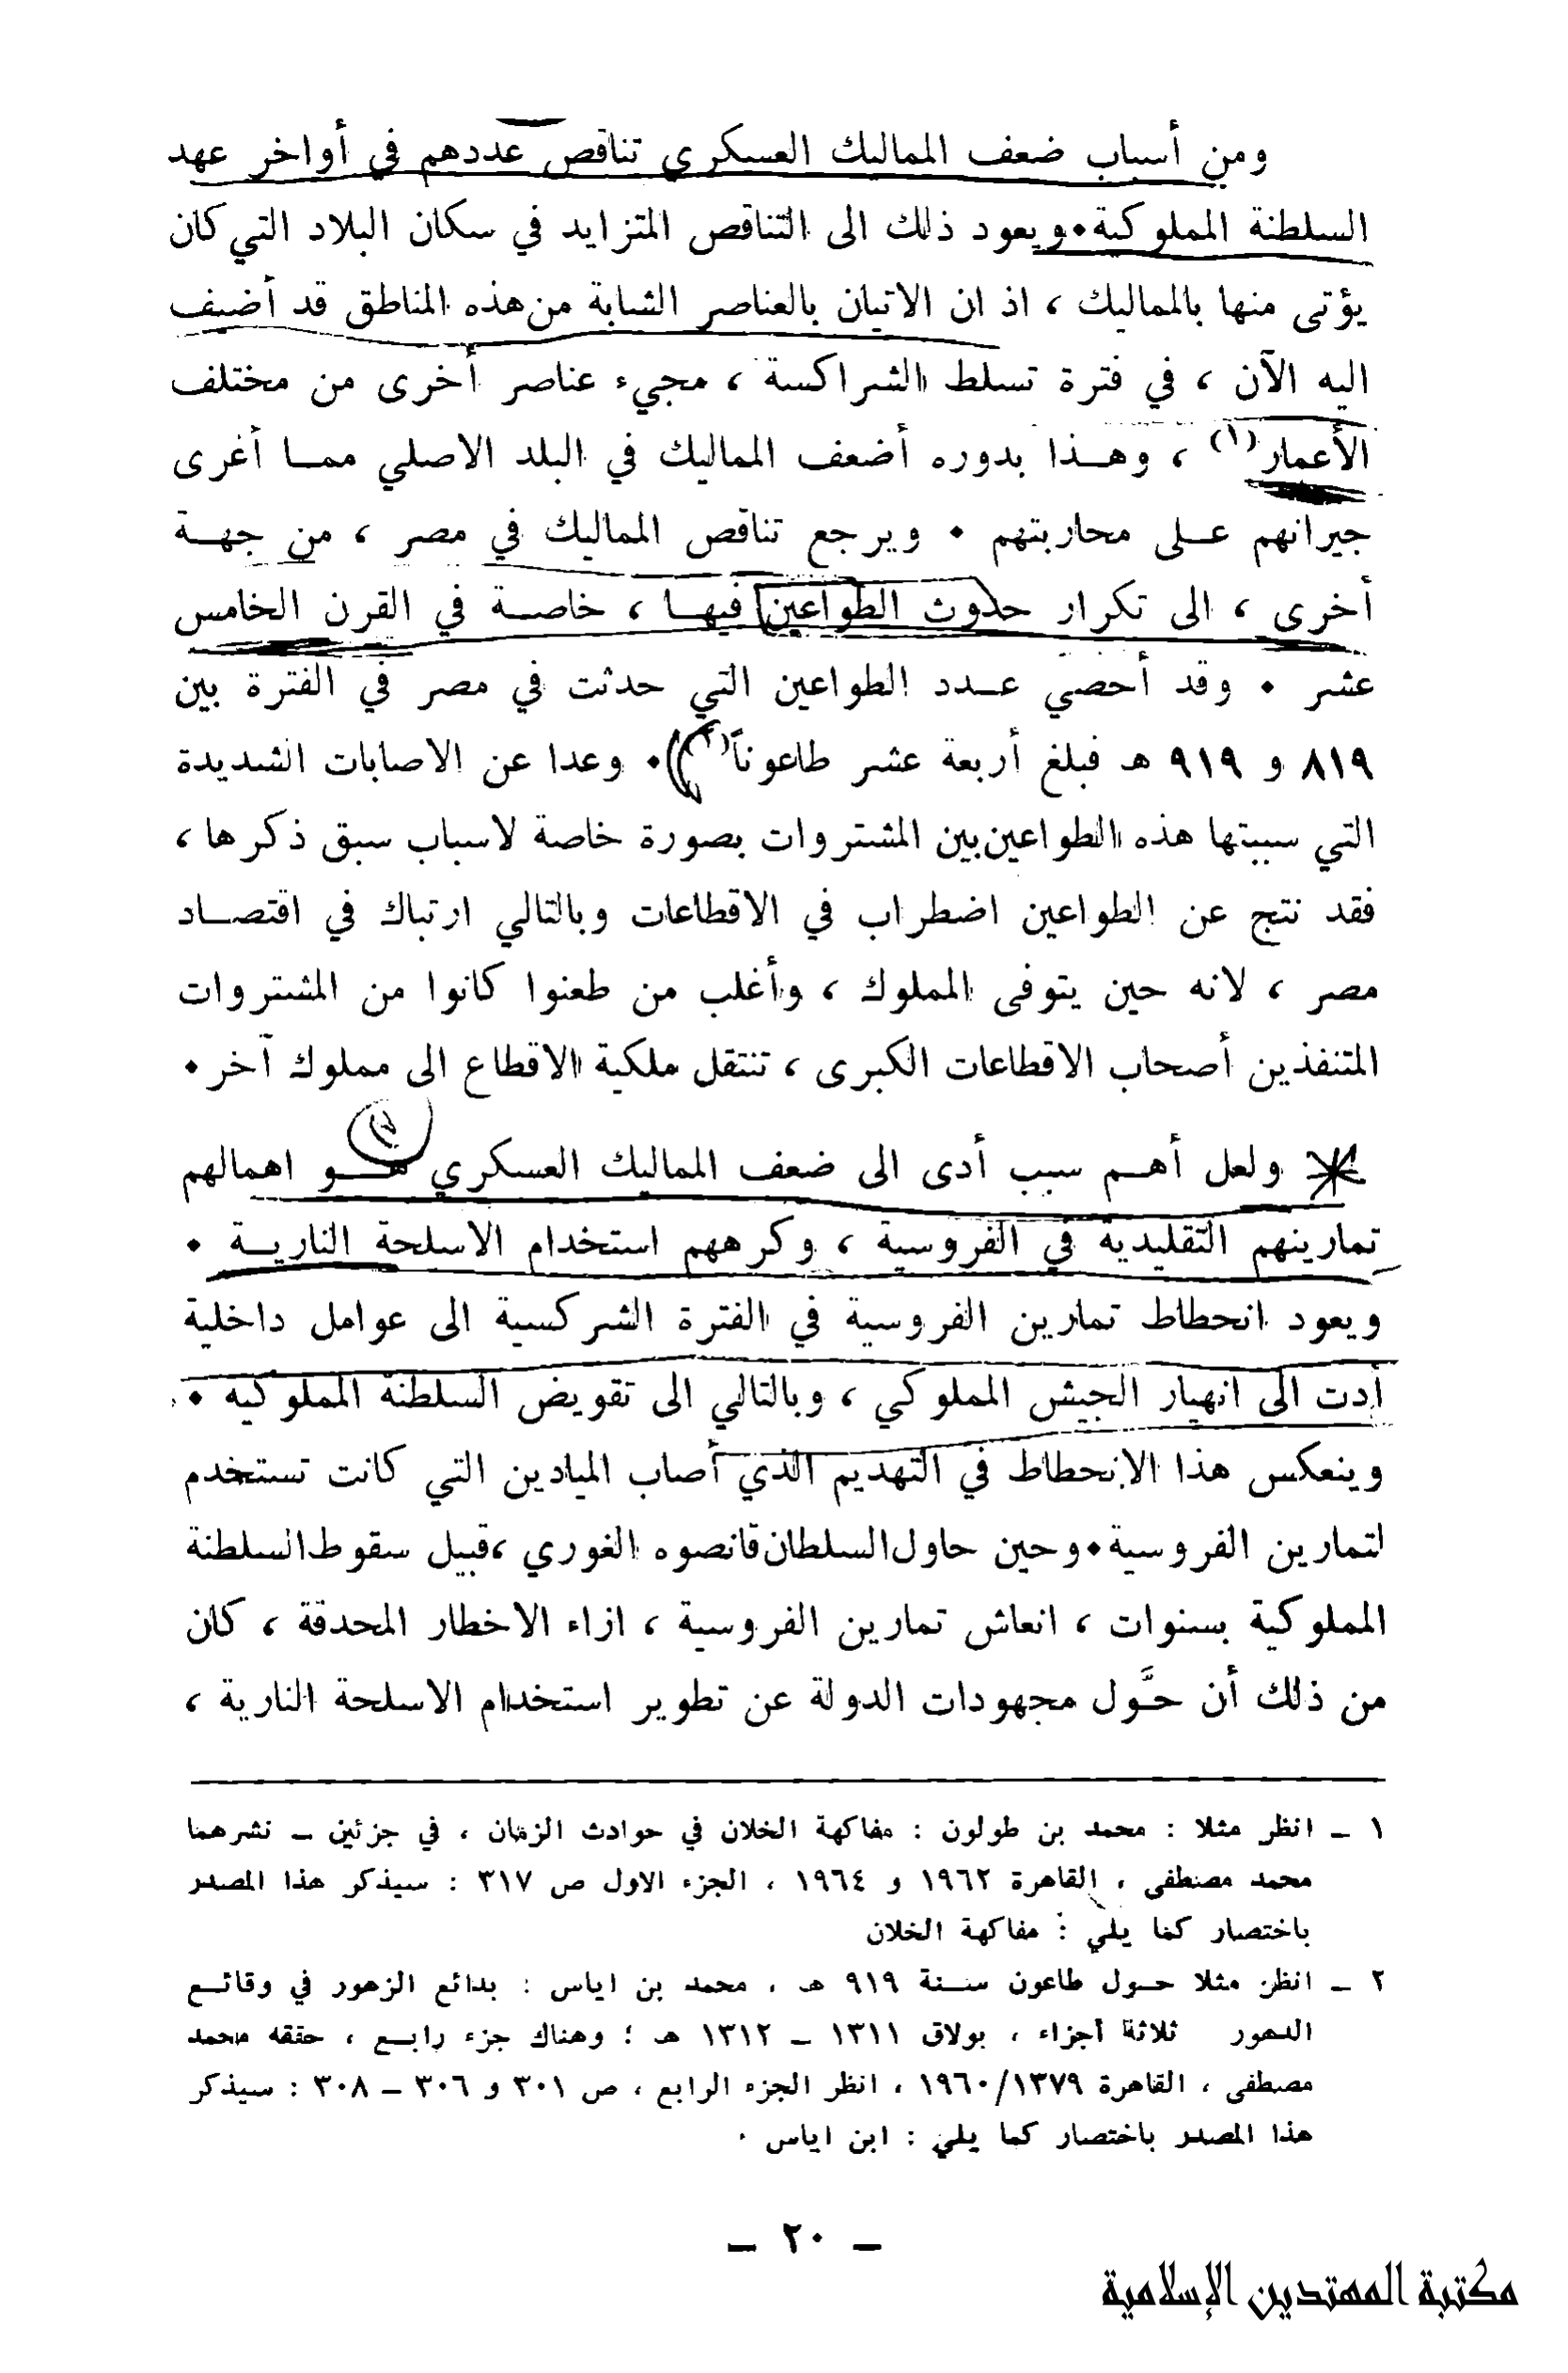 ومن أسباب ضعف المماليك العسكري تناقص عددهم في أواخر عهد
السلطنة المملوكية. ويعود ذلك الى التناقص المتزايد في سكان البلاد التي كان
يؤتى منها بالمماليك ، اذ ان الاتيان بالعناصر الشابة من هذه المناطق قد أضيف
اليه الآن ، في فترة تسلط الشراكسة ، مجيء عناصر أخرى من مختلف
الأعمار(١) ، وهـذا بدوره أضعف المماليك في البلد الاصلي ممـا أغرى
جيرانهم عـلى محاربتهم . ويرجع تناقص المماليك في مصر ، من جهـة
أخرى ، الى تكرار حدوث الطواعين فيهـا ، خاصـة في القرن الخامس
عشر . وقد أحصي عـدد الطواعين التي حدثت في مصر في الفترة بين
٨١٩ و ٩١٩ هـ فبلغ أربعة عشر طاعوناً(٢). وعدا عن الاصابات الشديدة
التي سببتها هذه الطواعين بين المشتروات بصورة خاصة لاسباب سبق ذكرها ،
فقد نتج عن الطواعين اضطراب في الاقطاعات وبالتالي ارتباك في اقتصـاد
مصر ، لانه حين يتوفى المملوك ، وأغلب من طعنوا كانوا من المشتروات
المتنفذين أصحاب الاقطاعات الكبرى ، تنتقل ملكية الاقطاع الى مملوك آخر .
ولعل أهـم سبب أدى الى ضعف المماليك العسكري هـو اهمالهم
تمارينهم التقليدية في الفروسية ، وكرههم استخدام الاسلحة الناريـة .
ويعود انحطاط تمارين الفروسية في الفترة الشركسية الى عوامل داخلية
أدت الى انهيار الجيش المملوكي ، وبالتالي الى تقويض السلطنة المملوكية .
وينعكس هذا الانحطاط في التهديم الذي أصاب الميادين التي كانت تستخدم
لتمارين الفروسية. وحين حاول السلطان قانصوه الغوري ، قبيل سقوط السلطنة
المملوكية بسنوات ، انعاش تمارين الفروسية ، ازاء الاخطار المحدقة ، كان
من ذلك أن حوَّل مجهودات الدولة عن تطوير استخدام الاسلحة النارية ،
١ – انظر مثلا : محمد بن طولون : مفاكهة الخلان في حوادث الزمان ، في جزئين – نشرهما
محمد مصطفى ، القاهرة ١٩٦٢ و ١٩٦٤ ، الجزء الاول ص ٣١٧ : سيذكر هذا المصدر
باختصار كما يلي : مفاكهة الخلان
٢ – انظر مثلا حـول طاعون سـنة ٩١٩ هـ ، محمد بن اياس : بدائع الزهور في وقائـع
الدهور ثلاثة أجزاء ، بولاق ١٣١١ – ١٣١٢ هـ ؛ وهناك جزء رابـع ، حققه محمد
مصطفى ، القاهرة ١٣٧٩/١٩٦٠ ، انظر الجزء الرابع ، ص ٣٠١ و ٣٠٦ – ٣٠٨ : سيذكر
هذا المصدر باختصار كما يلي : ابن اياس .
– ٢٠ –
مكتبة المهتدين الإسلامية